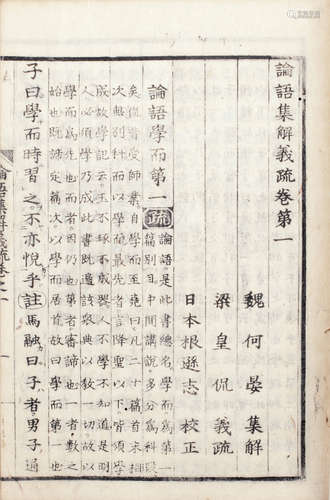 論語集解義疏卷第一
魏 何晏 集解
梁 皇侃 義疏
日本 根遜志 校正
論語學而第一 疏 論語是此書總名學而為第一
篇別目中間講說多分為科段
矣侃昔受師業自學而至堯曰凡二十篇首末相
次無別科而以學而最先者言降聖以下皆須學
成故學記云玉不琢不成器人不學不知道是明
人必須學乃成此書既遍該衆典以教一切故以
學而為先也而者因仍也第者審諦也一者數之
始也既諦定篇次以學而居首故曰學而第一也
子曰學而時習之不亦悅乎註馬融曰子者男子通